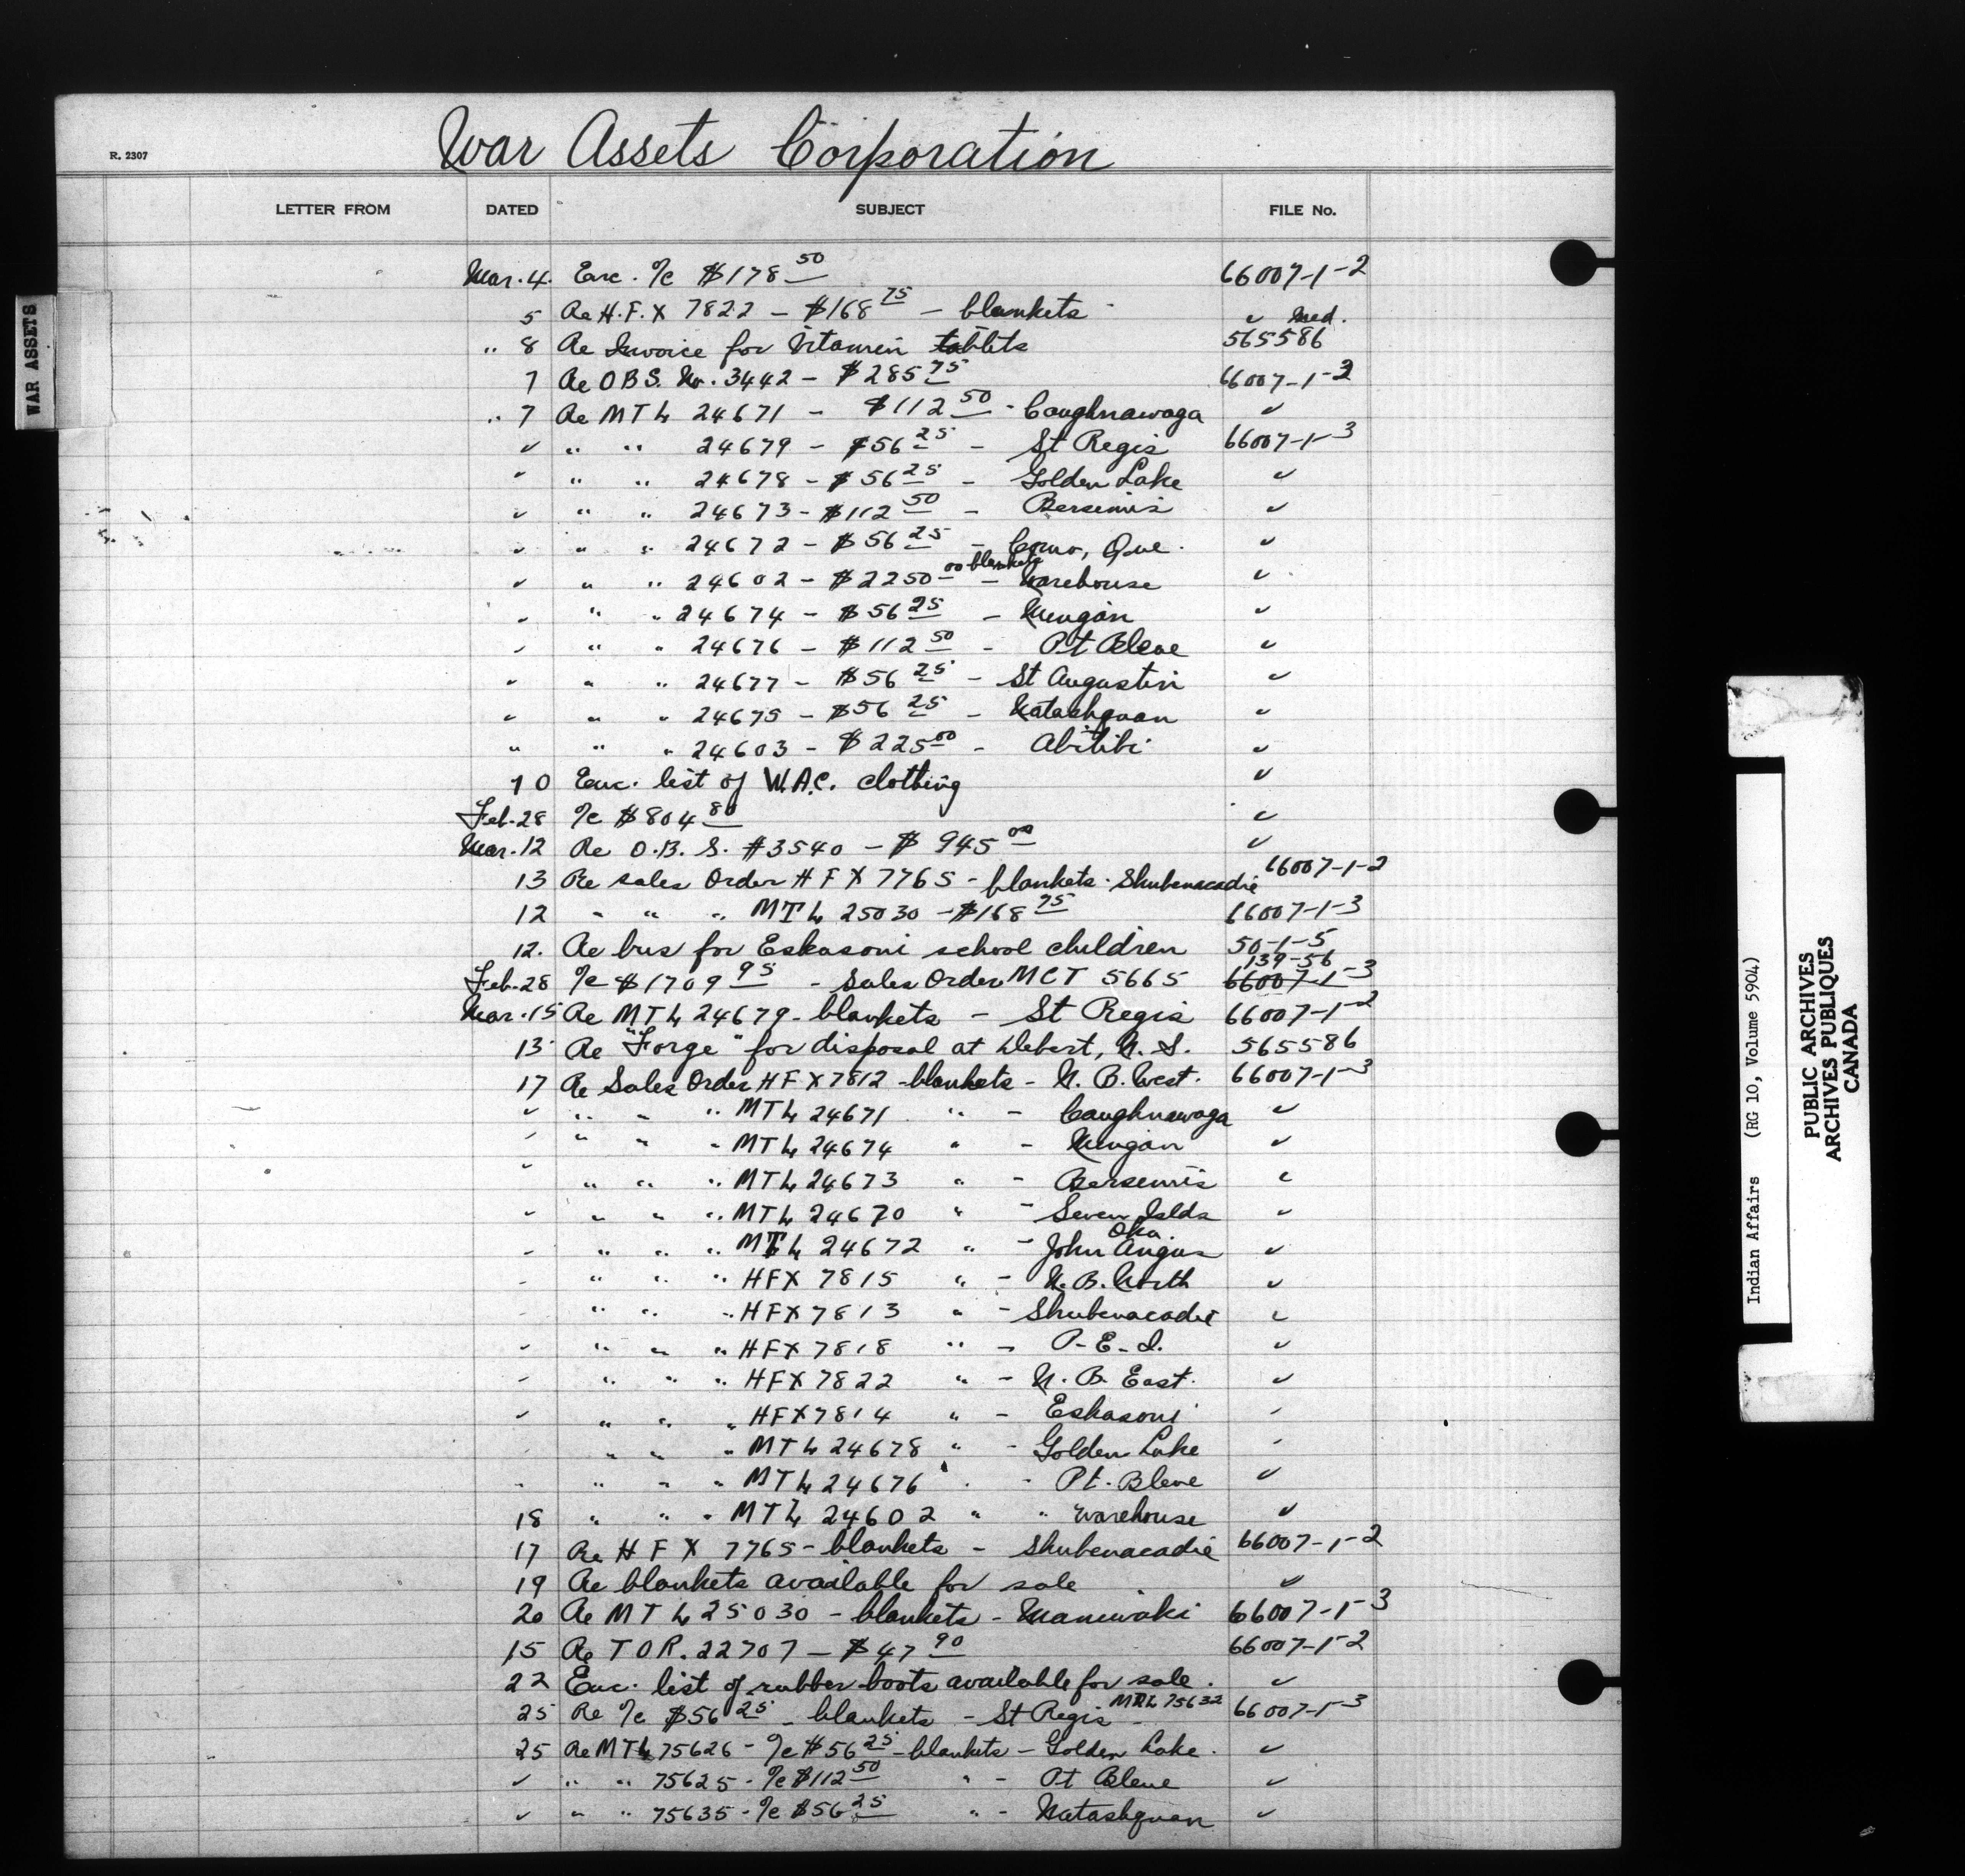 War Assets Corporation
R. 2307
LETTER FROM DATED SUBJECT FILE No.
WAR ASSETS
Mar. 4. Enc. I/c $178 50 66007-1-2
5 Re H.F.X 7822 - $168 75 - blankets " Med.
" 8 Re Invoice for Vitamin tablets 565586
7 Re OBS. No. 3442 - $285 75 66007-1-3
" 7 Re MTL 24671 - $112 50 - Caughnawaga "
" " " 24679 - $56 25 - St Regis 66007-1-3
" " " 24678 - $56 25 - Golden Lake "
" " " 24673 - $112 50 - Bersimis "
" " " 24672 - $56 25 - Como, Que. "
" " " 24602 - $2250 00 blankets - Warehouse "
" " " 24674 - $56 25 - Mingan "
" " " 24676 - $112 50 - Pt Bleue "
" " " 24677 - $56 25 - St Augustin "
" " " 24675 - $56 25 - Natashquan "
" " " 24603 - $225 00 - Abitibi "
10 Enc. list of W.A.C. clothing "
Feb. 28 I/c $804 80 "
Mar. 12 Re O.B.S. #3540 - $945 00 "
13 Re sales Order HFX 7765 - blankets - Shubenacadie 66007-1-2
12 " " " MTL 25030 - $168 75 66007-1-3
12. Re bus for Eskasoni school children 50-1-5
139-56
Feb. 28 I/c $1709 95 - Sales Order MCT 5665 66007-1-3
Mar. 15 Re MTL 24679 - blankets - St Regis 66007-1-2
13 Re "Forge" for disposal at Debert, N.S. 565586
17 Re Sales Order HFX 7812 - blankets - N.B. West. 66007-1-3
" " " " MTL 24671 " - Caughnawaga "
" " " " MTL 24674 " - Mingan "
" " " " MTL 24673 " - Bersimis "
" " " " MTL 24670 " - Seven Islds "
" " " " MTL 24672 " - John Angus Oka "
" " " " HFX 7815 " - N.B. North "
" " " " HFX 7813 " - Shubenacadie "
" " " " HFX 7818 " - P.E.I. "
" " " " HFX 7822 " - N.B. East. "
" " " " HFX 7814 " - Eskasoni "
" " " " MTL 24678 " - Golden Lake "
" " " " MTL 24676 " - Pt. Bleue "
18 " " " MTL 24602 " " Warehouse "
17 Re HFX 7765 - blankets - Shubenacadie 66007-1-2
19 Re blankets available for sale "
20 Re MTL 25030 - blankets - Maniwaki 66007-1-3
15 Re TOR. 22707 - $47 90 66007-1-2
22 Enc. list of rubber boots available for sale. "
25 Re I/c $56 25 - blankets - St Regis - MTL 75632 66007-1-3
25 Re MTL 75626 - I/c $56 25 - blankets - Golden Lake. "
" " " 75625 - I/c $112 50 " - Pt Bleue "
" " " 75635 - I/c $56 25 " - Natashquan "
Indian Affairs (RG 10, Volume 5904)
PUBLIC ARCHIVES
ARCHIVES PUBLIQUES
CANADA